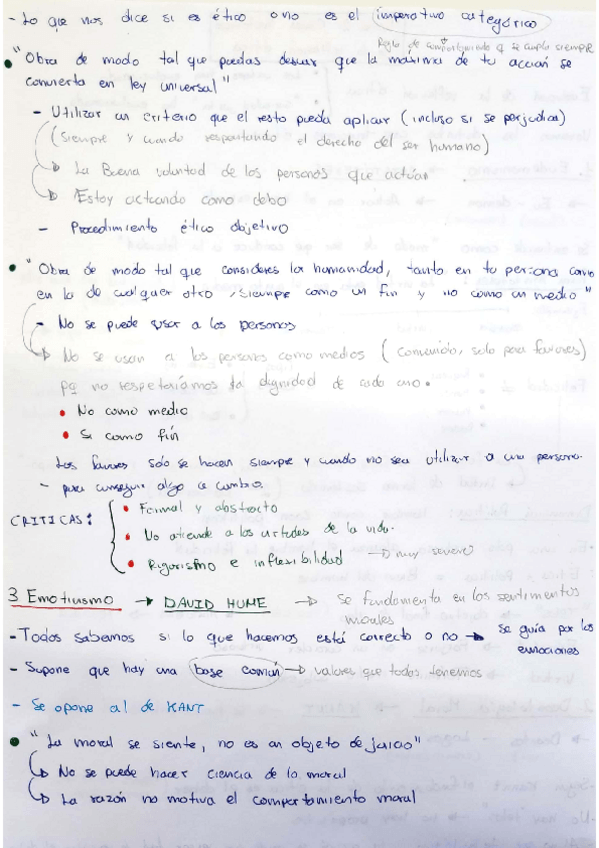 - Lo que nos dice si es ético o no es el imperativo categórico
Regla de comportamiento q se cumple siempre
"Obra de modo tal que puedas desear que la máxima de tu acción se
convierta en ley universal"
- Utilizar un criterio que el resto pueda aplicar (incluso si se perjudica)
(siempre y cuando respetando el derecho del ser humano)
La Buena voluntad de las personas que actúan
Estoy actuando como debo
- Procedimiento ético objetivo
"Obra de modo tal que consideres la humanidad, tanto en tu persona como
en la de cualquier otro, siempre como un fin y no como un medio"
- No se puede usar a las personas
No se usan a las personas como medios (convenido, solo para favores)
pq no respetaríamos la dignidad de cada uno.
• No como medio
• Si como fin
Los favores solo se hacen siempre y cuando no sea utilizar a una persona
- para conseguir algo a cambio.
CRITICAS:
• Formal y abstracto
• No atiende a las virtudes de la vida.
• Rigorismo e inflexibilidad → muy severo
3 Emotivismo → DAVID HUME → se fundamenta en los sentimientos
morales
- Todos sabemos si lo que hacemos está correcto o no → se guía por las
emociones
- Supone que hay una base común → valores que todos tenemos
- Se opone al de KANT
• "La moral se siente, no es un objeto de juicio"
No se puede hacer ciencia de la moral
La razón no motiva el comportamiento moral